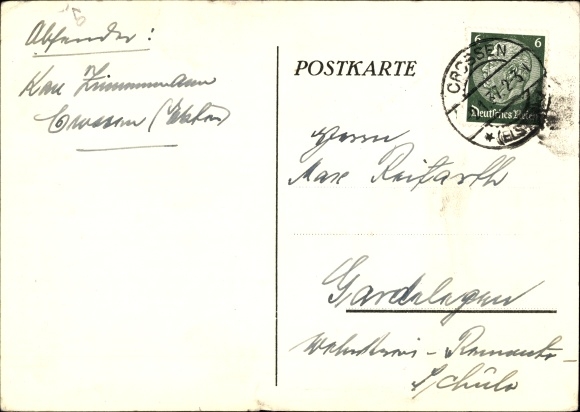 Absender:
Karl Zimmermann
Crossen (Elster)
POSTKARTE
6 6
Deutsches Reich
CROSSEN
(ELST
Herrn
Max Reifarth
Gardelegen
Remonte-
Schule